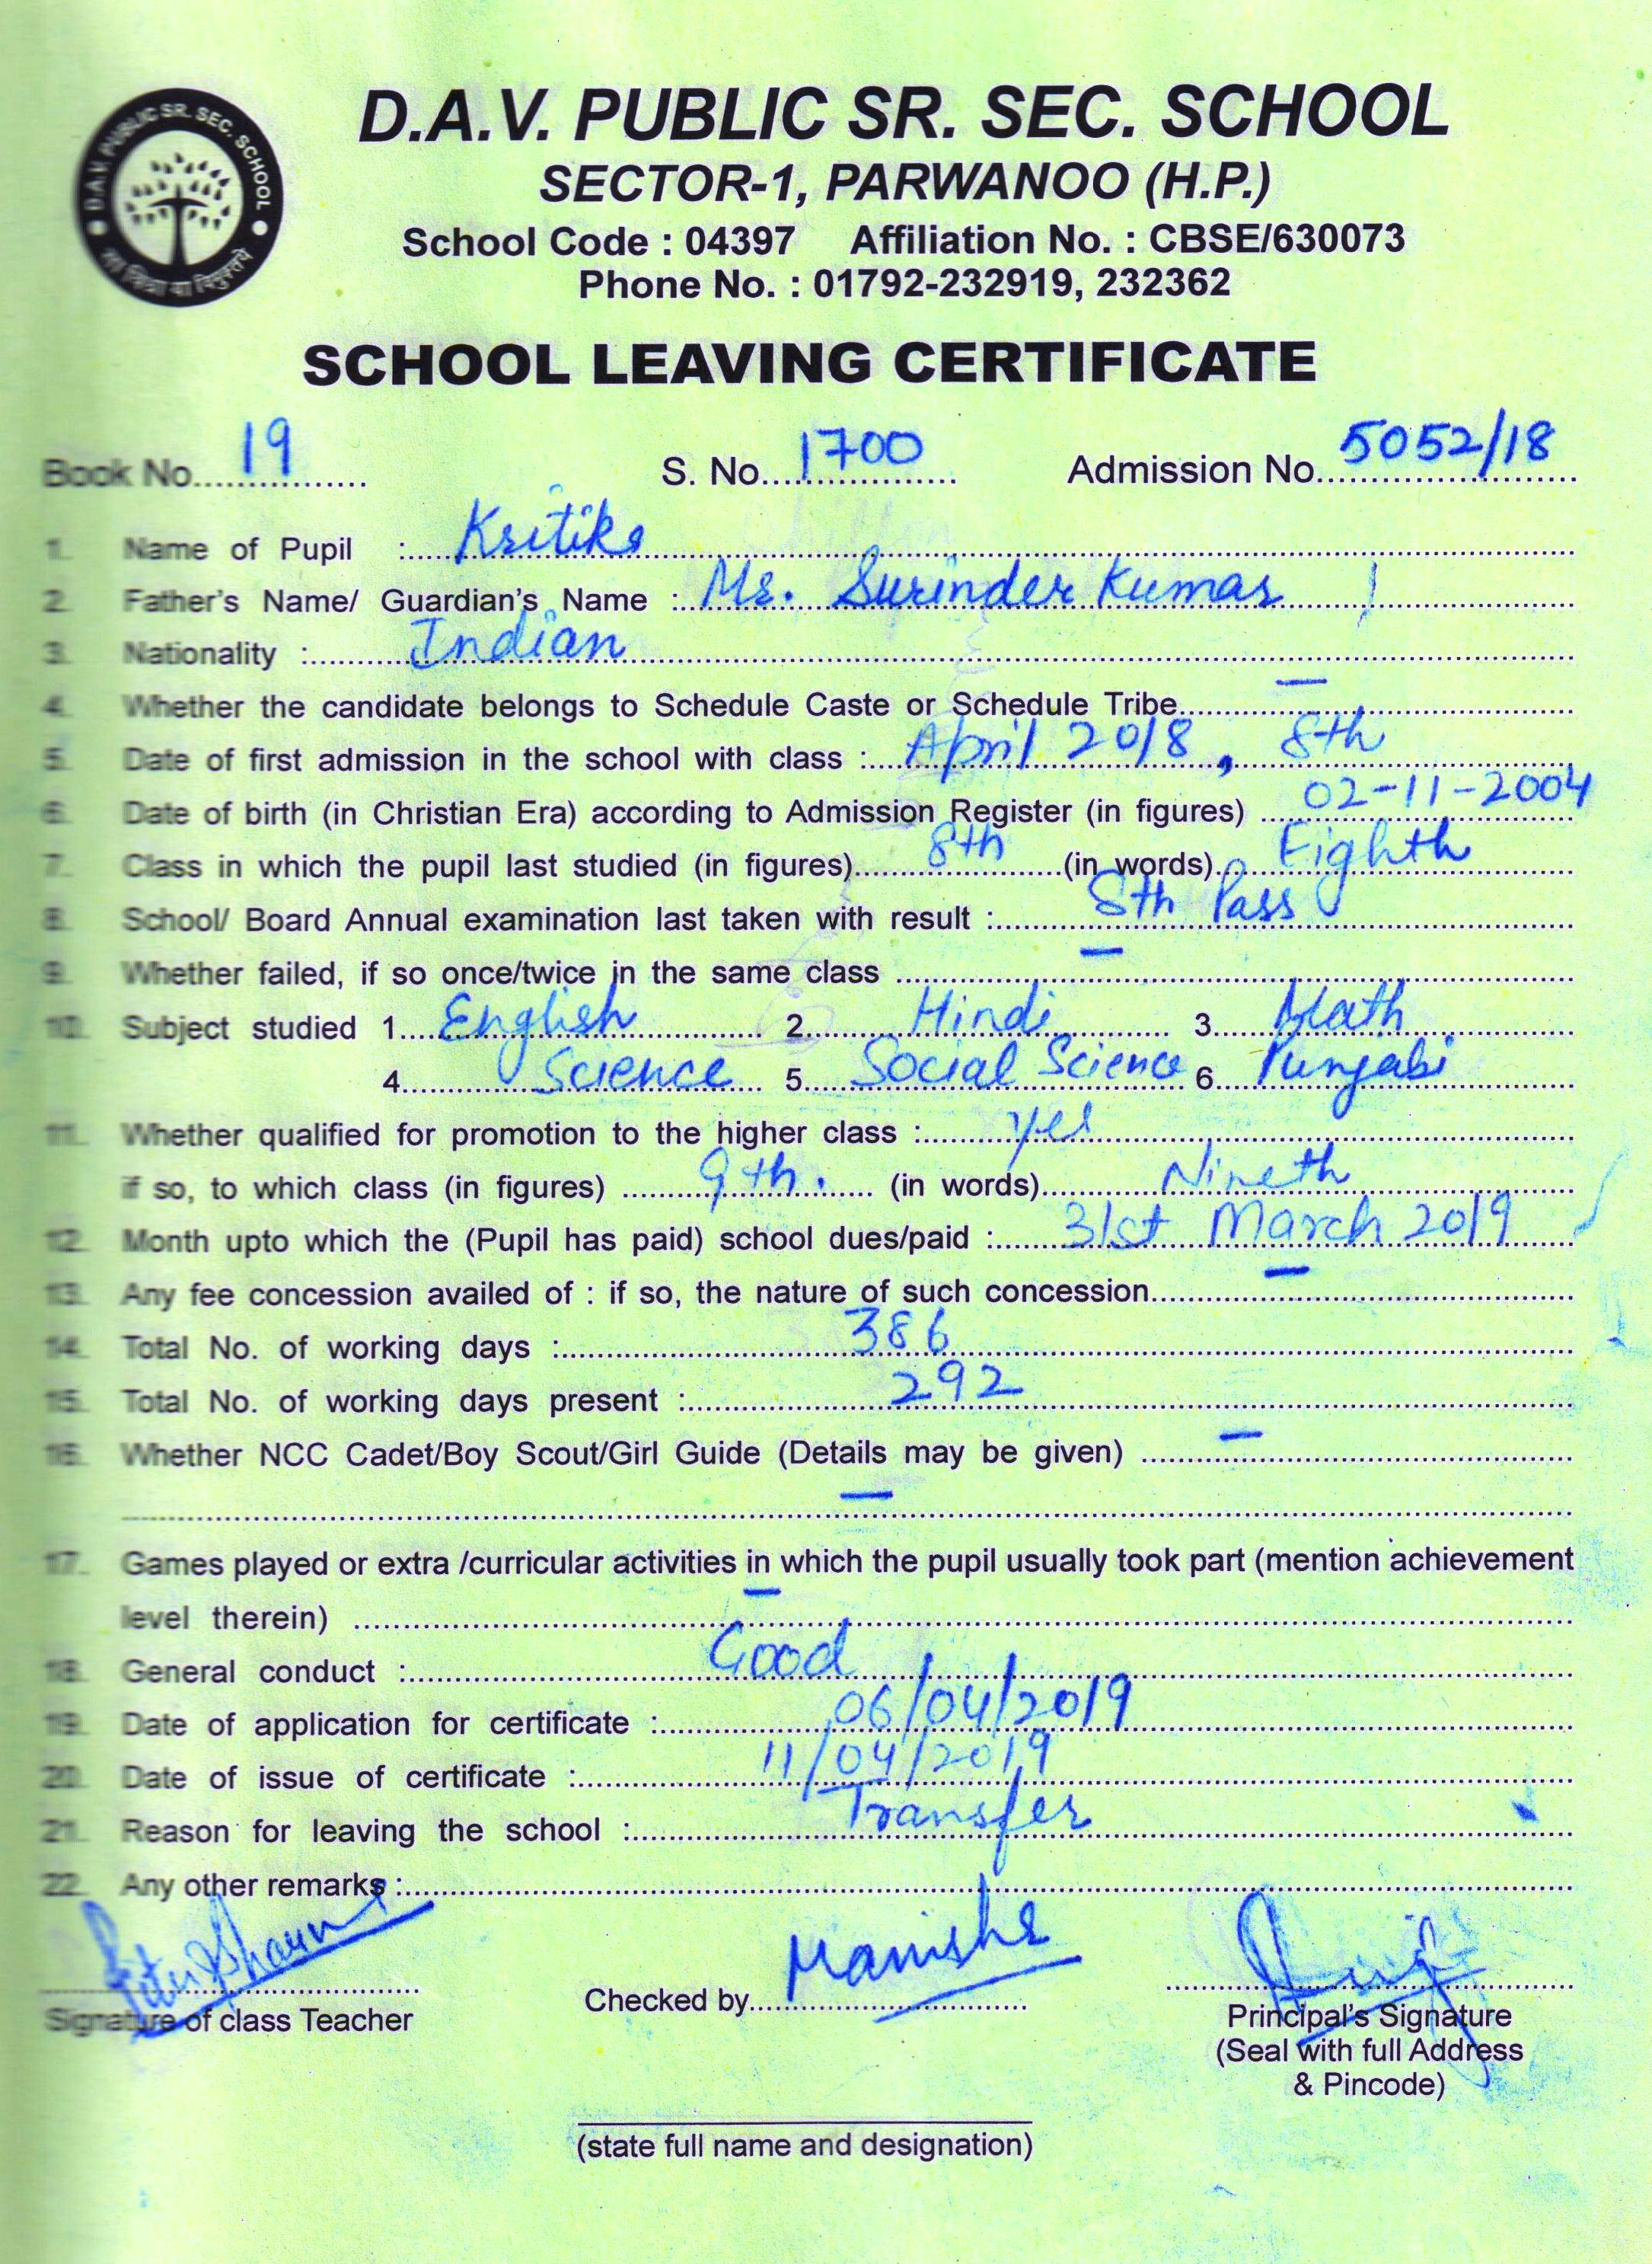 D.A.V. PUBLIC SR. SEC. SCHOOL
D.A.V. PUBLIC SR. SEC. SCHOOL
SECTOR-1, PARWANOO (H.P.)
School Code : 04397 Affiliation No. : CBSE/630073
Phone No. : 01792-232919, 232362
SCHOOL LEAVING CERTIFICATE
Book No. 19 S. No. 1700 Admission No. 5052/18
1. Name of Pupil : Kritika
2. Father's Name/ Guardian's Name : Mr. Surinder Kumar
3. Nationality : Indian
4. Whether the candidate belongs to Schedule Caste or Schedule Tribe —
5. Date of first admission in the school with class : April 2018, 8th
6. Date of birth (in Christian Era) according to Admission Register (in figures) 02-11-2004
7. Class in which the pupil last studied (in figures) 8th (in words) Eighth
8. School/ Board Annual examination last taken with result : 8th Pass
9. Whether failed, if so once/twice in the same class —
10. Subject studied 1. English 2. Hindi 3. Math
4. Science 5. Social Science 6. Punjabi
11. Whether qualified for promotion to the higher class : Yes
if so, to which class (in figures) 9th. (in words) Nineth
12. Month upto which the (Pupil has paid) school dues/paid : 31st March 2019
13. Any fee concession availed of : if so, the nature of such concession —
14. Total No. of working days : 386
15. Total No. of working days present : 292
16. Whether NCC Cadet/Boy Scout/Girl Guide (Details may be given) —
—
17. Games played or extra /curricular activities in which the pupil usually took part (mention achievement
level therein) —
18. General conduct : Good
19. Date of application for certificate : 06/04/2019
20. Date of issue of certificate : 11/04/2019
21. Reason for leaving the school : Transfer
22. Any other remarks :
Sharma
Signature of class Teacher
Checked by Manisha
Principal's Signature
(Seal with full Address
& Pincode)
(state full name and designation)